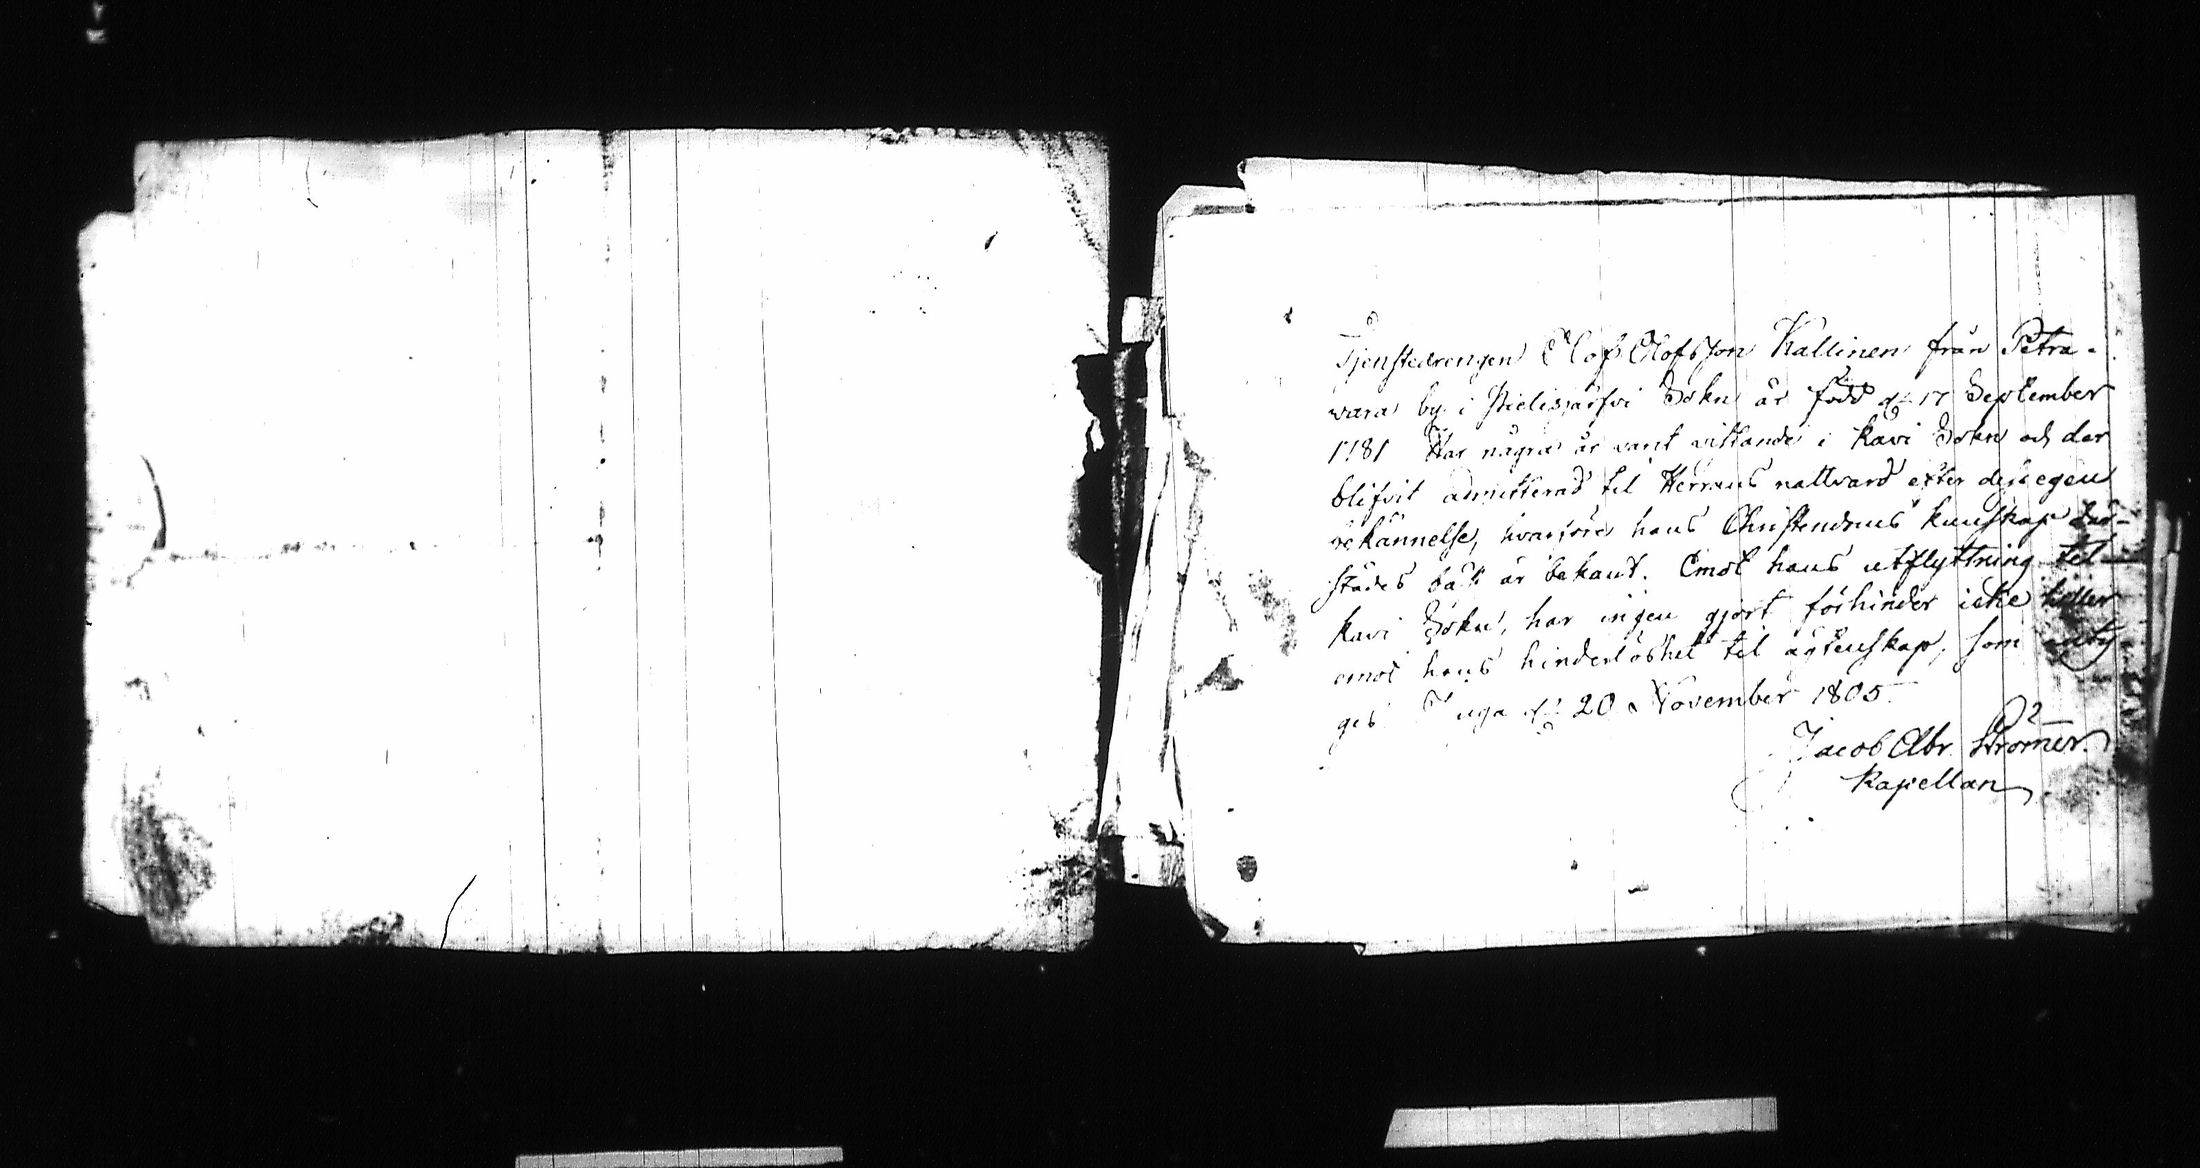 Tjenstedrengen Olof Olofsson Kallinen från Petra-
wara by i Pielisjärfvi Sokn är född d. 17 September
1781 Har några år varit vistande i Kavi Sokn och der
blifvit admitterad til Herrans nattvard efter des egen
bekännelse, hvarföre hans Christendoms kunskap der-
städes bäst är bekant. Emot hans utflyttning til
Kavi Sokn, har ingen gjort förhinder icke heller
emot hans hinderlöshet til ägtenskap, som
ges Juga d. 20 November 1805.
Jacob Abr. Stromer
Kapellan